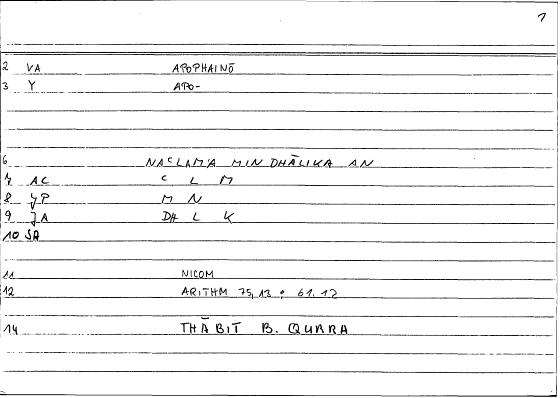 1
2 VA APOPHAINŌ
3 Y APO-
6 NACLAMA MIN DHĀLIKA AN
7 AC C L M
8 JP M N
9 JA DH L K
10 SA
11 NICOM
12 ARITHM 75,13 : 61.12
14 THĀBIT B. QURRA